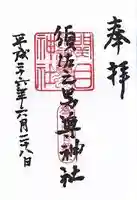 奉拝
須佐之男尊神社
平成二十六年六月二十八日